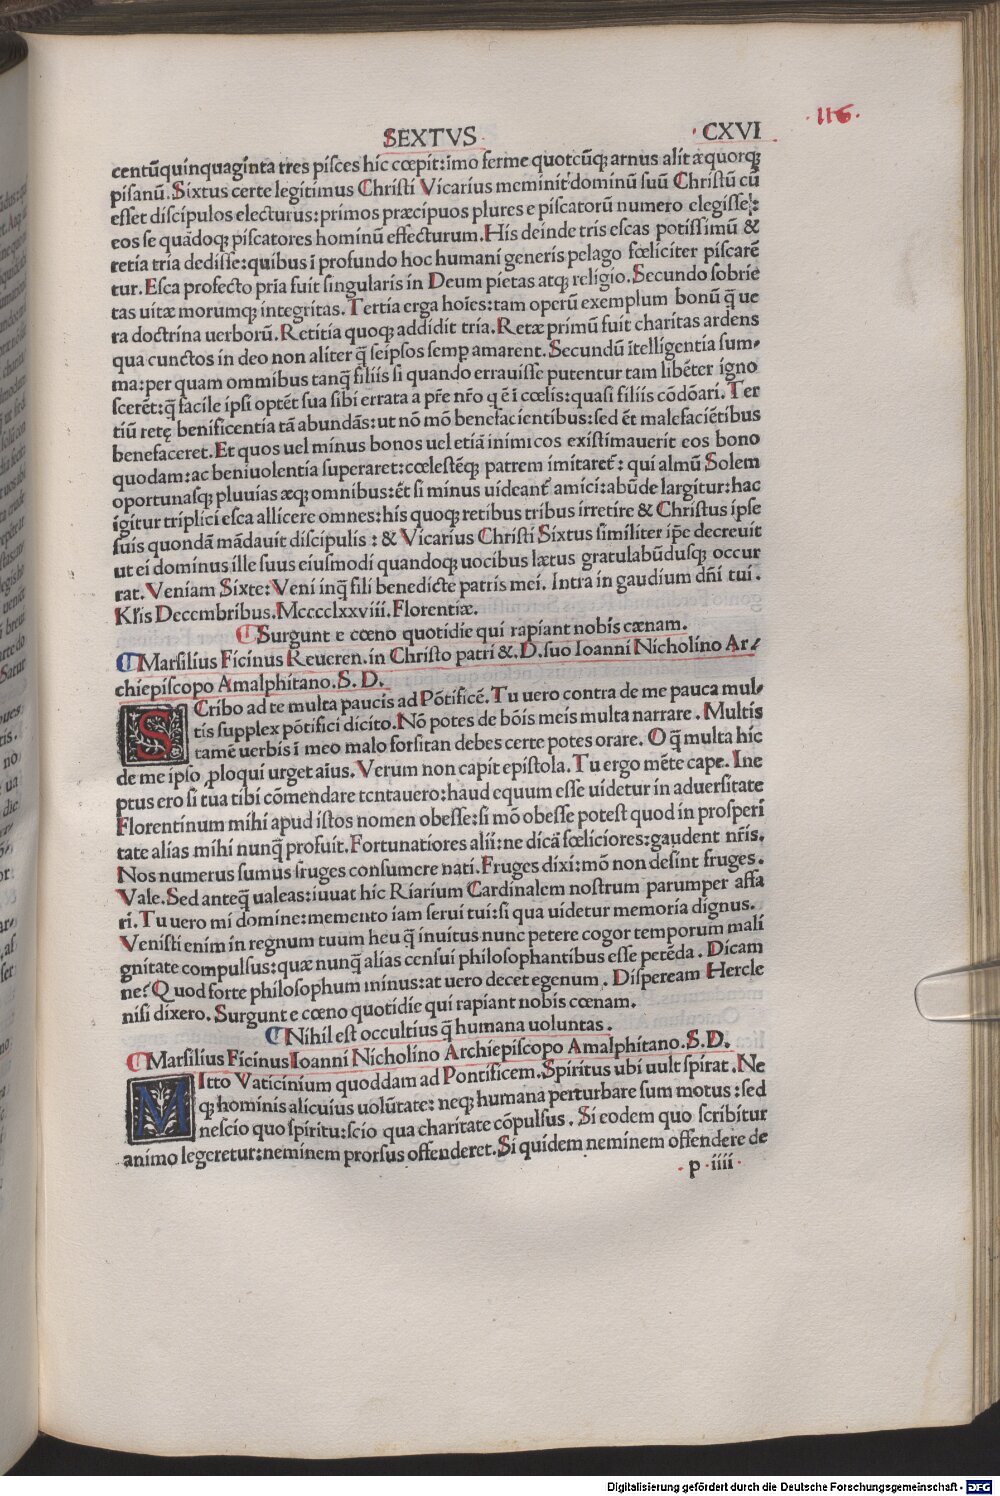 ·116·
SEXTVS · CXVI
centūquinquaginta tres pisces hic cœpit:imo ferme quotcūqꝫ arnus alit æquorqꝫ
pisanū. Sixtus certe legitimus Christi Vicarius meminit dominū suū Christū cū
esset discipulos electurus:primos præcipuos plures e piscatorū numero elegisse:
eos se quādoqꝫ piscatores hominū effecturum. His deinde tris escas potissimū &
retia tria dedisse:quibus ī profundo hoc humani generis pelago fœliciter piscarē
tur. Esca profecto pria fuit singularis in Deum pietas atqꝫ religio. Secundo sobrie
tas uitæ morumqꝫ integritas. Tertia erga hoīes:tam operū exemplum bonū q̄ ue
ra doctrina uerborū. Retitia quoqꝫ addidit tria. Retæ primū fuit charitas ardens
qua cunctos in deo non aliter q̄ seipsos semꝑ amarent. Secundū ītelligentia sum-
ma:per quam ommibus tanq̄ filiis si quando errauisse putentur tam libēter igno
scerēt:q̄ facile ipsi optēt sua sibi errata a pr̄e nr̄o q ē ī cœlis:quasi filiis cōdōari. Ter
tiū retę benificentia tā abundās:ut nō mō benefacientibus:sed ēt malefaciētibus
benefaceret. Et quos uel minus bonos uel etiā inimicos existimauerit eos bono
quodam:ac beniuolentia superaret:cœlestēqꝫ patrem imitaret̄: qui almū Solem
oportunasqꝫ pluuias æqꝫ omnibus:ēt si minus uideant̄ amici:abūde largitur:hac
igitur triplici esca allicere omnes:his quoqꝫ retibus tribus irretire & Christus ipse
suis quondā mādauit discipulis : & Vicarius Christi Sixtus similiter ip̄e decreuit
ut ei dominus ille suus eiusmodi quandoqꝫ uocibus lætus gratulabūdusqꝫ occur
rat. Veniam Sixte: Veni inq̄ fili benedicte patris mei. Intra in gaudium dn̄i tui.
Kl'is Decembribus. Mcccclxxviii. Florentiæ.
Surgunt e cœno quotidie qui rapiant nobis cænam.
Marsilius Ficinus Reueren. in Christo patri &. D. suo Ioanni Nicholino Ar-
chiepiscopo Amalphitano. S. D.
SCribo ad te multa paucis ad Pōtificē. Tu uero contra de me pauca mul-
tis supplex pōtifici dicito. Nō potes de bōis meis multa narrare. Multis
tamē uerbis ī meo malo forsitan debes certe potes orare. O q̄ multa hic
de me ipso ꝓloqui urget aīus. Verum non capit epistola. Tu ergo mēte cape. Ine
ptus ero si tua tibi cōmendare tentauero:haud equum esse uidetur in aduersitate
Florentinum mihi apud istos nomen obesse:si mō obesse potest quod in prosperi
tate alias mihi nunq̄ profuit. Fortunatiores alii:ne dicā fœliciores:gaudent nr̄is.
Nos numerus sumus fruges consumere nati. Fruges dixi:mō non desint fruges.
Vale. Sed anteq̄ ualeas:iuuat hic Riarium Cardinalem nostrum parumper affa
ri. Tu uero mi domine:memento iam serui tui:si qua uidetur memoria dignus.
Venisti enim in regnum tuum heu q̄ inuitus nunc petere cogor temporum mali
gnitate compulsus:quæ nunq̄ alias censui philosophantibus esse petēda. Dicam
ne? Quod forte philosophum minus:at uero decet egenum. Dispeream Hercle
nisi dixero. Surgunt e cœno quotidie qui rapiant nobis cœnam.
Nihil est occultius q̄ humana uoluntas.
Marsilius Ficinus Ioanni Nicholino Archiepiscopo Amalphitano. S. D.
MItto Vaticinium quoddam ad Pontificem. Spiritus ubi uult spirat. Ne
qꝫ hominis alicuius uolūtate: neqꝫ humana perturbare sum motus:sed
nescio quo spiritu:scio qua charitate cōpulsus. Si eodem quo scribitur
animo legeretur:neminem prorsus offenderet. Si quidem neminem offendere de
·p·iiii·
Digitalisierung gefördert durch die Deutsche Forschungsgemeinschaft - DFG